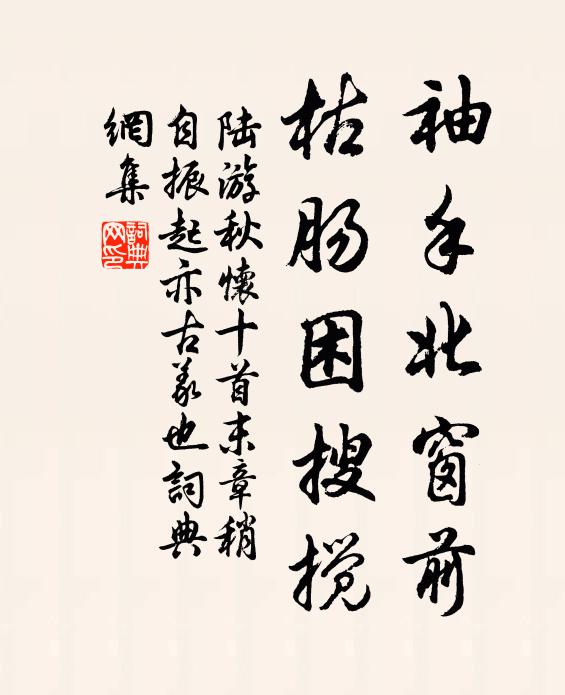 袖手北窗前
枯肠困搜搅
陆游秋懷十首末章稍
自振起亦古义也詞典
網集
詞典网印